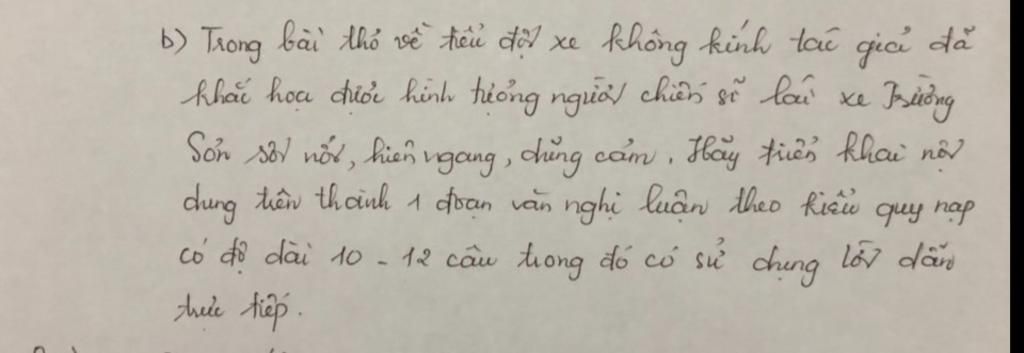 b) Trong bài thơ về tiểu đội xe không kính tác giả đã
khắc hoạ được hình tượng người chiến sĩ lái xe Trường
Sơn sôi nổi, hiên ngang, dũng cảm. Hãy triển khai nội
dung trên thành 1 đoạn văn nghị luận theo kiểu quy nạp
có độ dài 10 - 12 câu trong đó có sử dụng lời dẫn
trực tiếp.